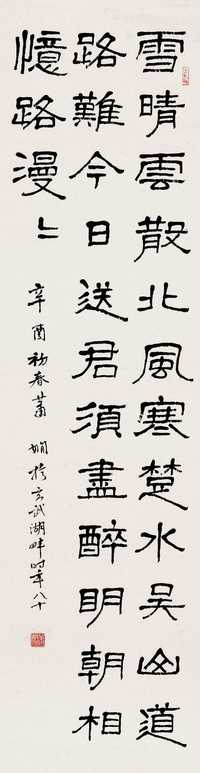 雪晴雲散北風寒楚水吳山道
路難今日送君須盡醉明朝相
憶路漫〻
辛酉初春蕭嫻於玄武湖畔時年八十